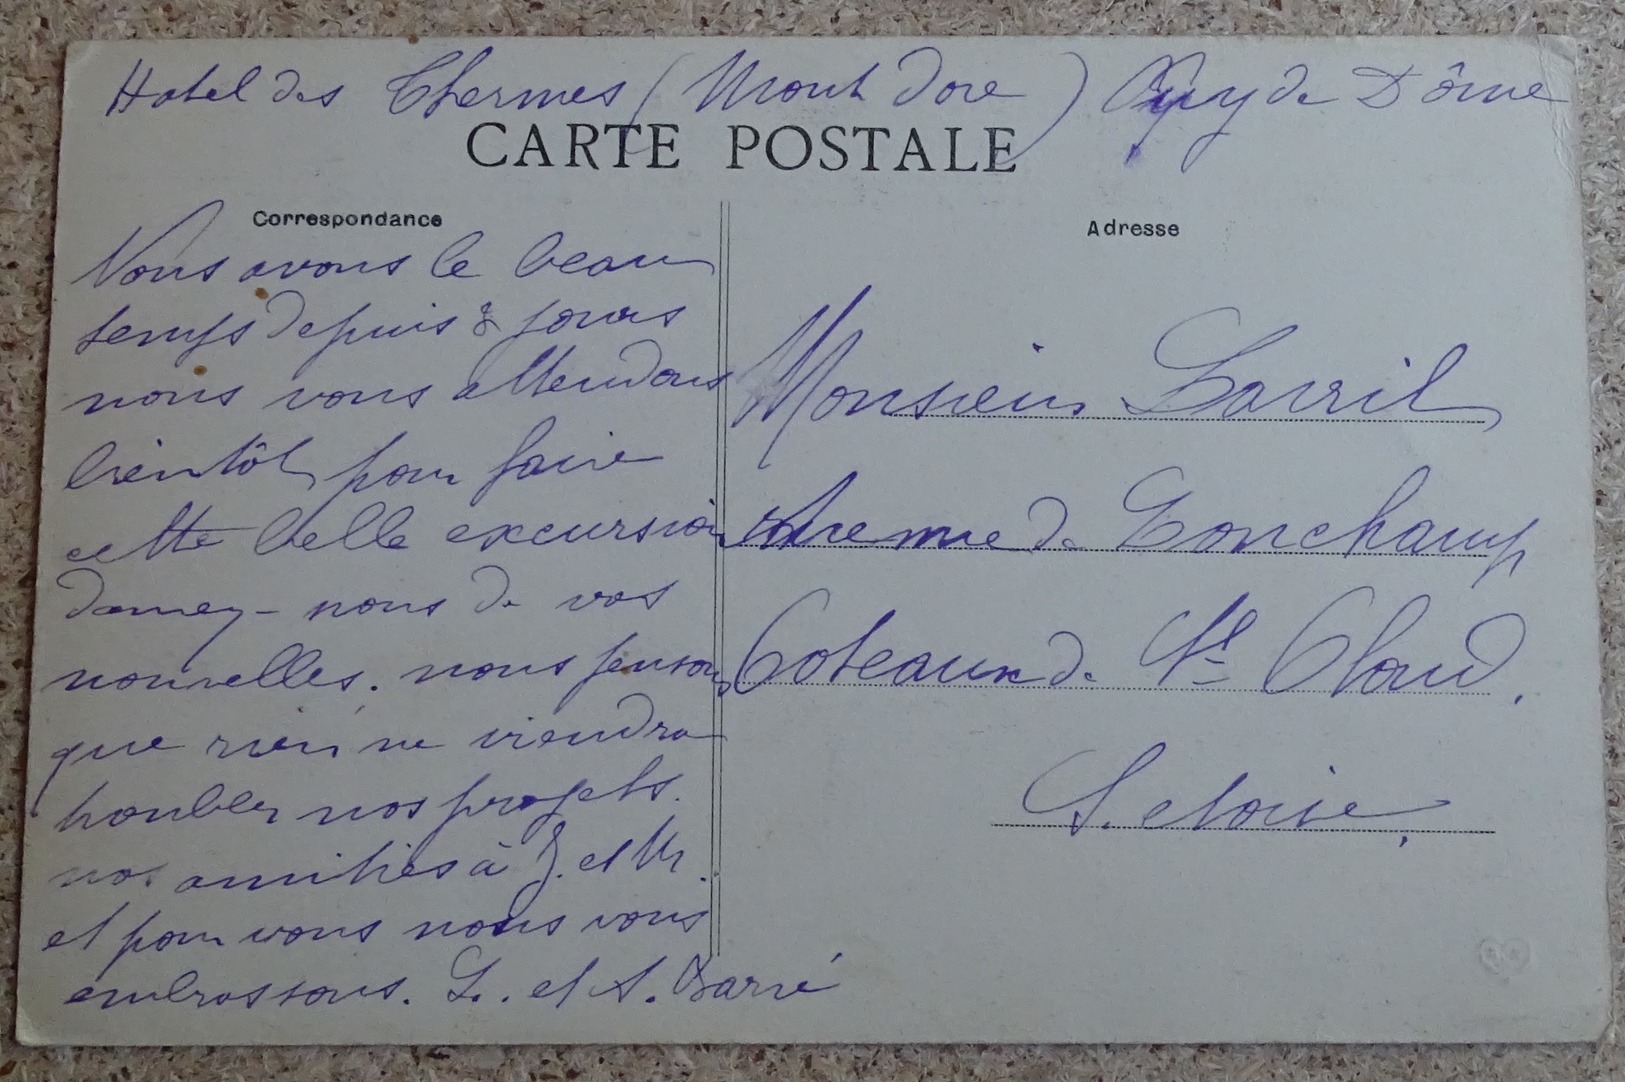 Hotel des Thermes (Mont Dore) Puy de Dôme
CARTE POSTALE
Correspondance
Nous avons le beau
temps depuis 8 jours
nous vous attendons
bientôt pour faire
cette belle excursion
donnez-nous de vos
nouvelles. nous pensons
que rien ne viendra
troubler nos projets.
nos amitiés à J. et M.
et pour vous nous vous
embrassons. L. et A. Barré
Adresse
Monsieur Larril
Avenue de Lonchamp
Coteaux de St Cloud.
S. et oise.